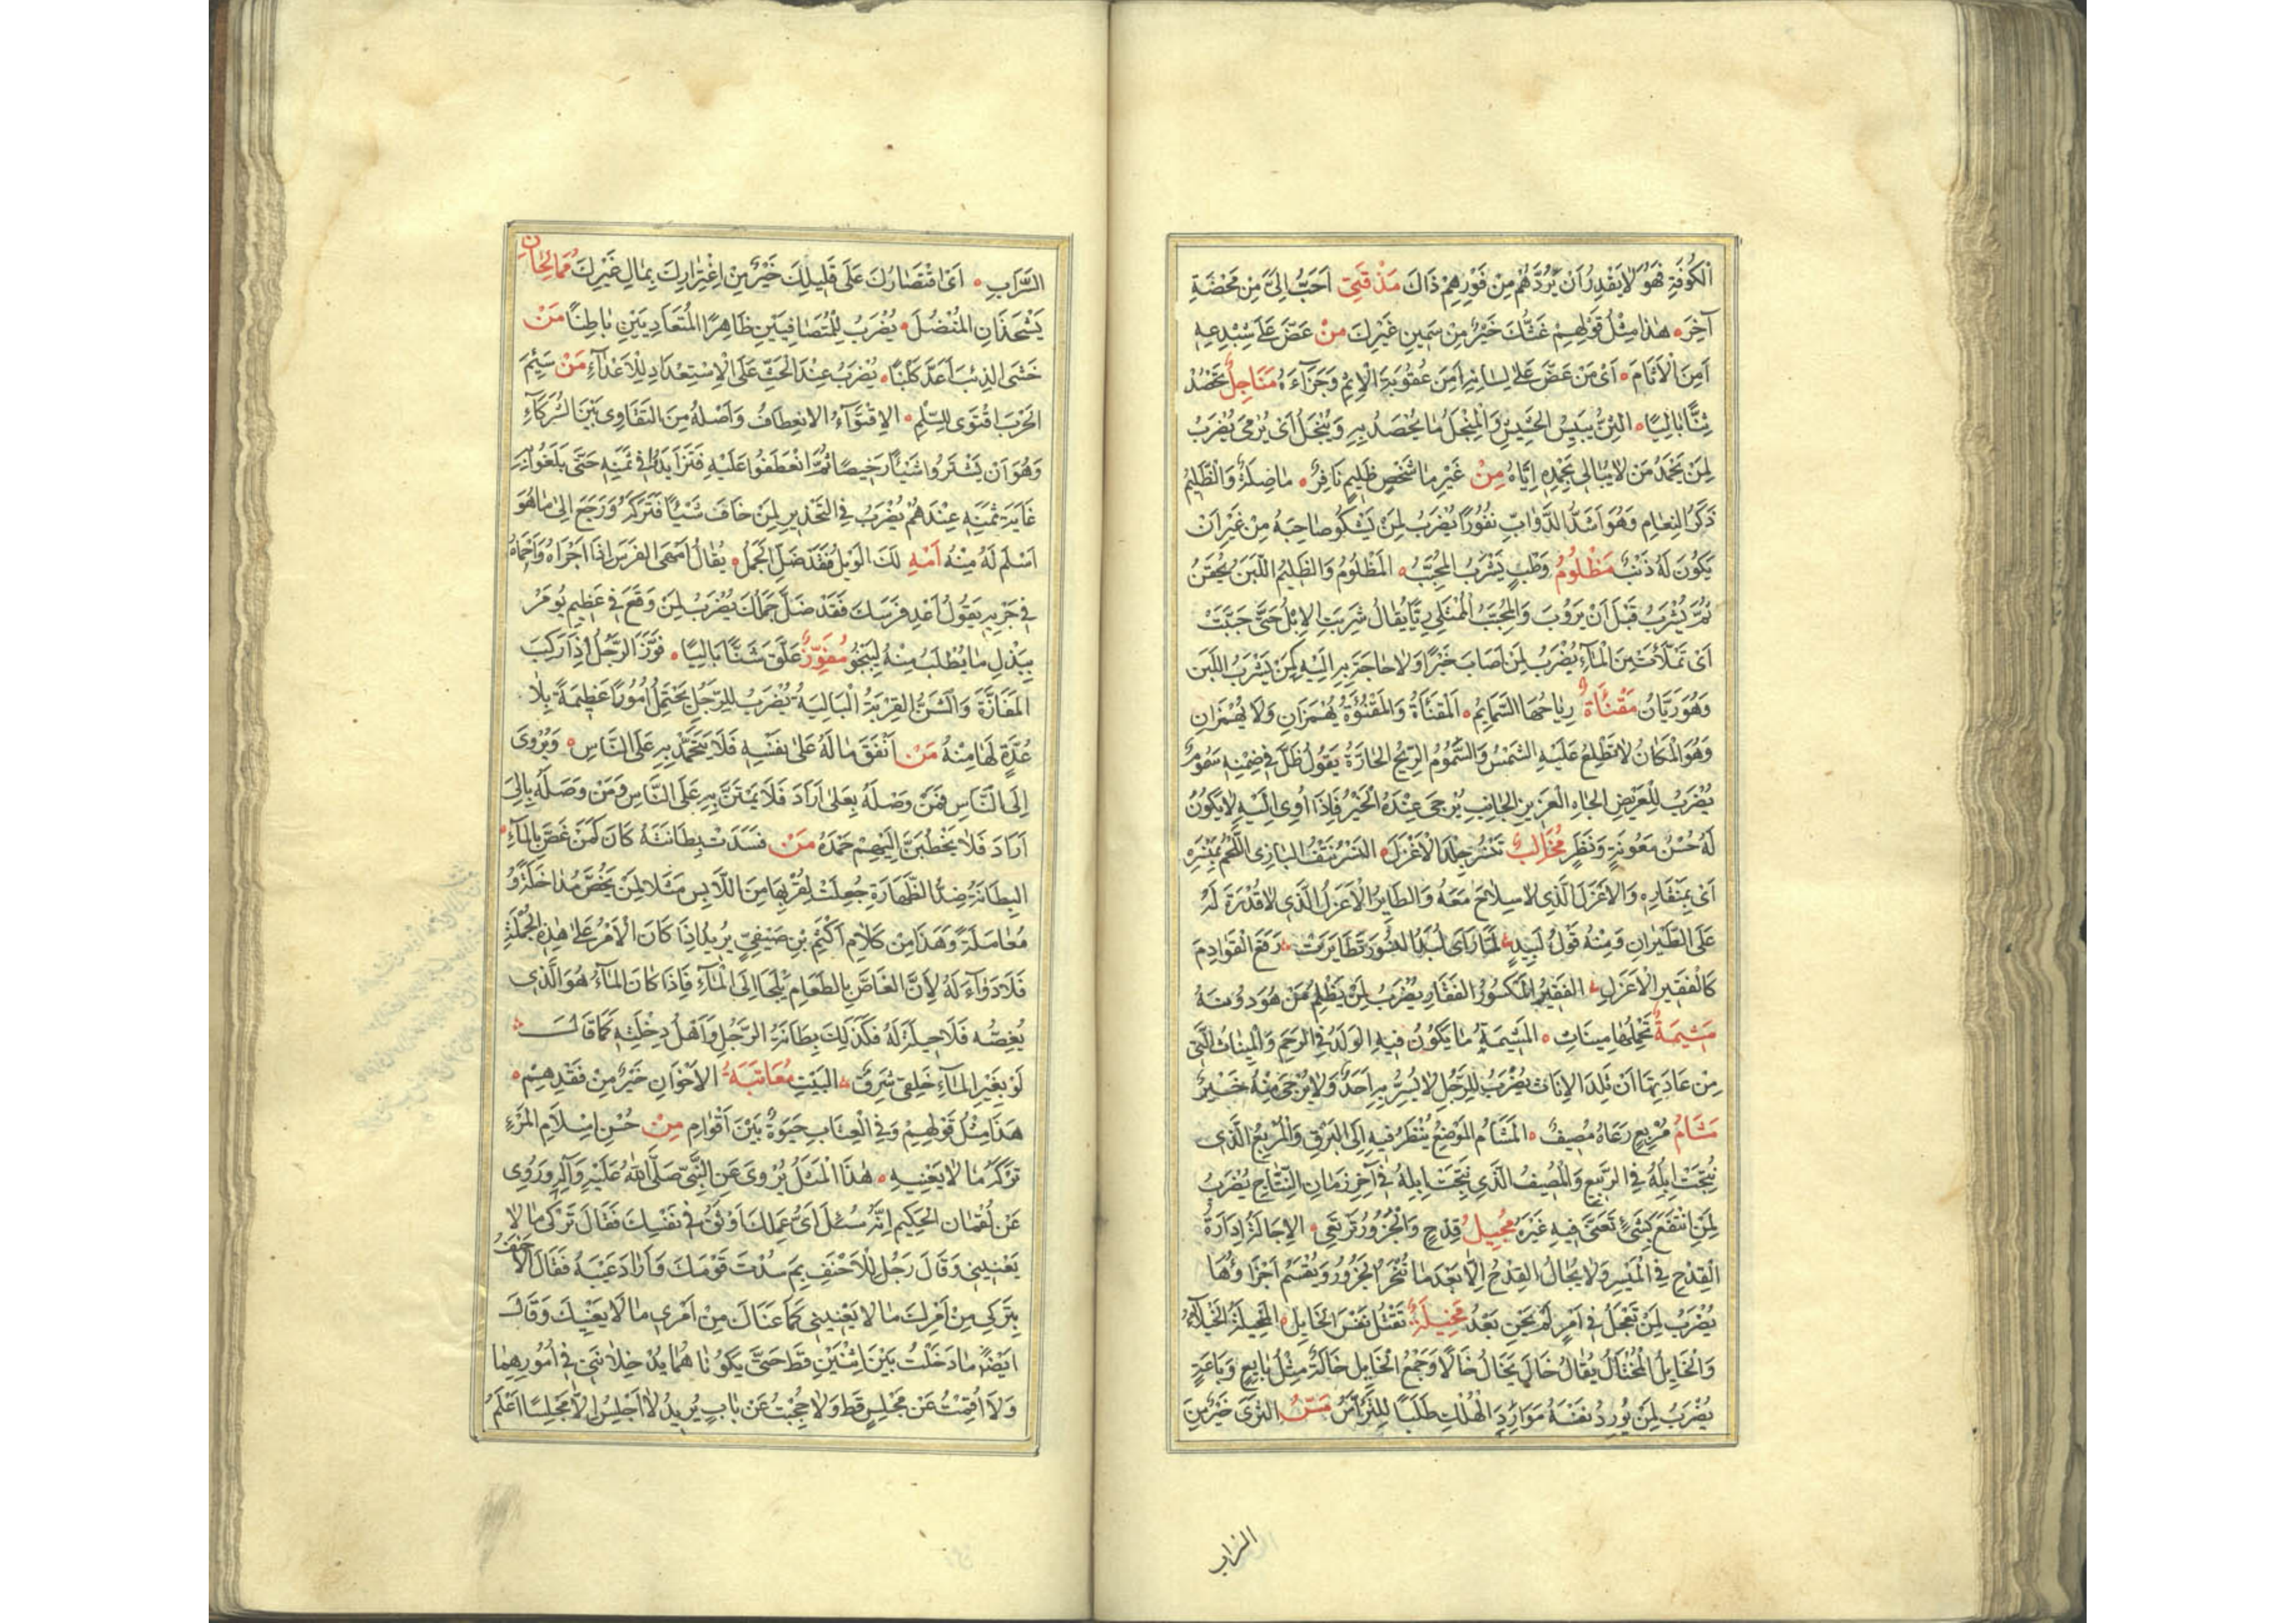 الْكُوفَةِ فَهُوَ لَا يَقْدِرُ أَنْ يَرُدَّهُمْ مِنْ فَوْرِهِمْ ذَاكَ مَذْقَتِي أَحَبُّ إِلَيَّ مِنْ مَخْضَةِ
آخِرَ هٰذَا مِثْلُ قَوْلِهِمْ غَثُّكَ خَيْرٌ مِنْ سَمِينِ غَيْرِكَ مَنْ عَضَّ عَلَى شِبْدِعِهِ
أَمِنَ الْأَثَامَ أَيْ مَنْ عَضَّ عَلَى لِسَانِهِ أَمِنَ عُقُوبَةَ الْإِثْمِ وَجَزَاءَهُ مَنَاجِلُ تَحْصُدُ
ثِنًّا بَالِيًا الثِّنُّ يَبِيسُ الْحَشِيشِ وَالْمِنْجَلُ مَا يُحْصَدُ بِهِ وَيُنْجَلُ أَيْ يُرْمَى يُضْرَبُ
لِمَنْ يَحْمَدُ مَنْ لَا يُبَالِي بِحَمْدِهِ إِيَّاهُ مِنْ غَيْرِ مَا شَخْصٍ ظَلِيمٌ نَافِرٌ مَا صِلَةٌ وَالظَّلِيمُ
ذَكَرُ النَّعَامِ وَهُوَ أَشَدُّ الدَّوَابِّ نُفُورًا يُضْرَبُ لِمَنْ يَشْكُو صَاحِبَهُ مِنْ غَيْرِ أَنْ
يَكُونَ لَهُ ذَنْبٌ مَظْلُومُ وَطْبٍ يَشْرَبُ الْمُحْبَّبُ الْمَظْلُومُ وَالظَّلِيمُ اللَّبَنُ يُحْقَنُ
ثُمَّ يُشْرَبُ قَبْلَ أَنْ يَرُوبَ وَالْمُجَبَّبُ الْمُمْتَلِي رِيًّا يُقَالُ شَرِبَتِ الْإِبِلُ حَتَّى حَبَّبَتْ
أَيْ تَمَلَّأَتْ مِنَ الْمَاءِ يُضْرَبُ لِمَنْ أَصَابَ خَيْرًا وَلَا حَاجَةَ بِهِ إِلَيْهِ كَمَنْ يَشْرَبُ اللَّبَنَ
وَهُوَ رَيَّانُ مَقْنَأَةٌ رِيَاحُهَا السَّمَايِمُ الْمَقْنَأَةُ وَالْمَقْنُؤَةُ يُهْمَزَانِ وَلَا يُهْمَزَانِ
وَهُوَ الْمَكَانُ لَا تَطْلِعُ عَلَيْهِ الشَّمْسُ وَالسَّمُومُ الرِّيحُ الْحَارَّةُ يَقُولُ ظِلٌّ فِي ضِمْنِهِ سَمُومٌ
يُضْرَبُ لِلْعَرِيضِ الْجَاهِ الْعَزِيزِ الْجَانِبِ يُرْجَى عِنْدَهُ الْخَيْرُ فَإِذَا أُوِيَ إِلَيْهِ لَا يَكُونُ
لَهُ حُسْنُ مَعُونَةٍ وَنَظَرٍ مَخَالِبُ تَنْسُرُ جِلْدَ الْأَعْزَلِ النَّسْرُ نَتْفُ الْبَازِي اللَّحْمَ بِمَنْسِرِهِ
أَيْ بِمِنْقَارِهِ وَالْأَعْزَلُ الَّذِي لَا سِلَاحَ مَعَهُ وَالطَّايِرُ الْأَعْزَلُ الَّذِي لَا قُدْرَةَ لَهُ
عَلَى الطَّيَرَانِ وَمِنْهُ قَوْلُ لَبِيدٍ لَمَّا رَأَى لُبَدُ النُّسُورَ تَطَايَرَتْ رَفَعَ الْقَوَادِمَ
كَالْفَقِيرِ الْأَعْزَلِ الْفَقِيرُ الْمَكْسُورُ الْفَقَارِ يُضْرَبُ لِمَنْ يَظْلِمُ مَنْ هُوَ دُونَهُ
مَشِيمَةٌ تَحْمِلُهَا مِينَاثٌ الْمَشِيمَةُ مَا يَكُونُ فِيهِ الْوَلَدُ فِي الرَّحِمِ وَالْمِينَاثُ الَّتِي
مِنْ عَادَتِهَا أَنْ تَلِدَ الْإِنَاثَ يُضْرَبُ لِلرَّجُلِ لَا يُسَرُّ بِهِ أَحَدٌ وَلَا يُرْجَى مِنْهُ خَيْرٌ
مَشَامُ مُرْبِعٍ رَعَاهُ مُصِيفٌ الْمَشَامُ الْمَوْضِعُ يُنْظَرُ فِيهِ إِلَى الْبَرْقِ وَالْمُرْبِعُ الَّذِي
نُتِجَتْ إِبِلُهُ فِي الرَّبِيعِ وَالْمُصِيفُ الَّذِي نُتِجَتْ إِبِلُهُ فِي آخِرِ زَمَانِ النِّتَاجِ يُضْرَبُ
لِمَنِ انْتَفَعَ بِشَيْءٍ تَعَنَّى فِيهِ غَيْرُهُ مُجِيلُ قِدْحٍ وَالْجَزُورُ تَرْتَعِي الْإِجَالَةُ إِدَارَةُ
الْقِدْحِ فِي الْمَيْسِرِ وَلَا يُجَالُ الْقِدْحُ إِلَّا بَعْدَ مَا تُنْحَرُ الْجَزُورُ وَيُقْسَمُ أَجْزَاؤُهَا
يُضْرَبُ لِمَنْ تَعَجَّلُ فِي أَمْرٍ لَمْ يَحِنْ بَعْدُ مَخِيلَةٌ تَقْتُلُ نَفْسَ الْخَايِلِ الْمَخِيلَةُ الْخُيَلَاءُ
وَالْخَايِلُ الْمُخْتَالُ يُقَالُ خَالَ يَخَالُ خَالًا وَجَمْعُ الْخَايِلِ خَالَةٌ مِثْلُ بَايِعٍ وَبَاعَةٍ
يُضْرَبُ لِمَنْ يُورِدُ نَفْسَهُ مَوَارِدَ الْهُلْكِ طَلَبًا لِلتَّرَؤُّسِ مَسُّ الثَّرَى خَيْرٌ مِنَ
السَّرَابِ
السَّرَابِ أَيْ اقْتِصَارُكَ عَلَى قَلِيلِكَ خَيْرٌ مِنْ اغْتِرَارِكَ بِمَالِ غَيْرِكَ مُمَالِحَانِ
يَشْحَذَانِ الْمُنْصُلَ يُضْرَبُ لِلْمُتَصَافِيَيْنِ ظَاهِرًا الْمُتَعَادِيَيْنِ بَاطِنًا مَنْ
خَشِيَ الذِّئْبَ أَعَدَّ كَلْبًا يُضْرَبُ عِنْدَ الْحَثِّ عَلَى الْاِسْتِعْدَادِ لِلْأَعْدَاءِ مَنْ سَئِمَ
الْحَرْبَ اقْتَوَى لِلسِّلْمِ الْاِقْتِوَاءُ الْاِنْعِطَافُ وَأَصْلُهُ مِنَ التَّقَاوِي بَيْنَ الشُّرَكَاءِ
وَهُوَ أَنْ يَشْتَرُوا شَيْئًا رَخِيصًا ثُمَّ انْعَطَفُوا عَلَيْهِ فَتَزَايَدُوا فِي ثَمَنِهِ حَتَّى بَلَغُوا بِهِ
غَايَةَ ثَمَنِهِ عِنْدَهُمْ يُضْرَبُ فِي التَّحْذِيرِ لِمَنْ خَافَ شَيْئًا فَتَرَكَهُ وَرَجَعَ إِلَى مَا هُوَ
أَسْلَمُ لَهُ مِنْهُ أَمْهِ لَكَ الْوَيْلُ فَقَدْ ضَلَّ الْجَمَلُ يُقَالُ أَمْهَى الْفَرَسَ إِذَا أَجْرَاهُ وَأَحْمَاهُ
فِي جَرْيِهِ يَقُولُ أَعْدِ فَرَسَكَ فَقَدْ ضَلَّ جَمَلُكَ يُضْرَبُ لِمَنْ وَقَعَ فِي عَظِيمٍ يُومَرُ
بِبَذْلِ مَا يُطْلَبُ مِنْهُ لِيَنْجُوَ مُفَوِّزٌ عَلَّقَ شَنًّا بَالِيًا فَوَّزَ الرَّجُلُ إِذَا رَكِبَ
الْمَفَازَةَ وَالشَّنُّ الْقِرْبَةُ الْبَالِيَةُ يُضْرَبُ لِلرَّجُلِ يَحْتَمِلُ أُمُورًا عَظِيمَةً بِلَا
عُدَّةٍ لَهَا مِنْهُ مَنْ أَنْفَقَ مَالَهُ عَلَى نَفْسِهِ فَلَا يَتَحَمَّدْ بِهِ عَلَى النَّاسِ وَيُرْوَى
إِلَى النَّاسِ فَمَنْ وَصَلَهُ بِعَلَى أَرَادَ فَلَا يَمْتَنَّ بِهِ عَلَى النَّاسِ وَمَنْ وَصَلَهُ بِإِلَى
أَرَادَ فَلَا يَخْطُبَنَّ إِلَيْهِمْ حَمْدَهُ مَنْ فَسَدَتْ بِطَانَتُهُ كَانَ كَمَنْ غَصَّ بِالْمَاءِ
الْبِطَانَةُ ضِدُّ الظِّهَارَةِ جُعِلَتْ لِقُرْبِهَا مِنَ اللَّابِسِ مَثَلًا لِمَنْ يَخُصُّ مُدَاخَلَةً وَ
مُعَامَلَةً وَهَذَا مِنْ كَلَامِ أَكْثَمَ بْنِ صَيْفِيٍّ يُرِيدُ إِذَا كَانَ الْأَمْرُ عَلَى هٰذِهِ الْجُمْلَةِ
فَلَا دَوَاءَ لَهُ لِأَنَّ الْغَاصَّ بِالطَّعَامِ يَلْجَا إِلَى الْمَاءِ فَإِذَا كَانَ الْمَاءُ هُوَ الَّذِي
يُغِصُّهُ فَلَا حِيلَةَ لَهُ فَكَذَلِكَ بِطَانَةُ الرَّجُلِ وَأَهْلُ دِخْلَتِهِ كَمَا قَالَ
لَوْ بِغَيْرِ الْمَاءِ حَلْقِي شَرِقٌ الْبَيْتَ مُعَاتَبَةُ الْأَخْوَانِ خَيْرٌ مِنْ فَقْدِهِمْ
هَذَا مِثْلُ قَوْلِهِمْ وَفِي الْعِتَابِ حَيٰوةٌ بَيْنَ أَقْوَامٍ مِنْ حُسْنِ إِسْلَامِ الْمَرْءِ
تَرْكُهُ مَا لَا يَعْنِيهِ هٰذَا الْمَثَلُ يُرْوَى عَنِ النَّبِيِّ صَلَّى اللَّهُ عَلَيْهِ وَآلِهِ وَرُوِيَ
عَنْ لُقْمَانَ الْحَكِيمِ إِنَّهُ سُئِلَ أَيُّ عَمَلِكَ أَوْثَقُ فِي نَفْسِكَ فَقَالَ تَرْكِي مَا لَا
يَعْنِينِي وَقَالَ رَجُلٌ لِلْأَحْنَفِ بِمَ سُدْتَ قَوْمَكَ وَأَرَادَ عَيْبَهُ فَقَالَ الْأَحْنَفُ
بِتَرْكِي مِنْ أَمْرِكَ مَا لَا يَعْنِينِي كَمَا عَنَاكَ مِنْ أَمْرِي مَا لَا يَعْنِيكَ وَقَالَ
أَيْضًا مَا دَخَلْتُ بَيْنَ اثْنَيْنِ قَطُّ حَتَّى يَكُونَا هُمَا يُدْخِلَانَنِي فِي أُمُورِهِمَا
وَلَا أُقِمْتُ عَنْ مَجْلِسٍ قَطُّ وَلَا حُجِبْتُ عَنْ بَابٍ يُرِيدُ لَا أَجْلِسُ إِلَّا مَجْلِسًا أَعْلَمُ